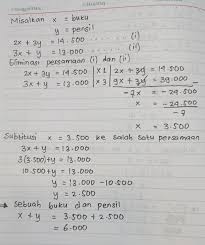 Misalkan x = buku
y = pensil
2x + 3y = 14.500 ........ (i)
3x + y = 13.000 ........ (ii)
Eliminasi persamaan (i) dan (ii)
2x + 3y = 14.500 | x 1 | 2x + 3y = 14.500
3x + y = 13.000 | x 3 | 9x + 3y = 39.000
-7x = -24.500
x = -24.500
-7
x = 3.500
Subtitusi x = 3.500 ke salah satu persamaan
3x + y = 13.000
3(3.500) + y = 13.000
10.500 + y = 13.000
y = 13.000 - 10.500
y = 2.500
→ Sebuah buku dan pensil
x + y = 3.500 + 2.500
= 6.000